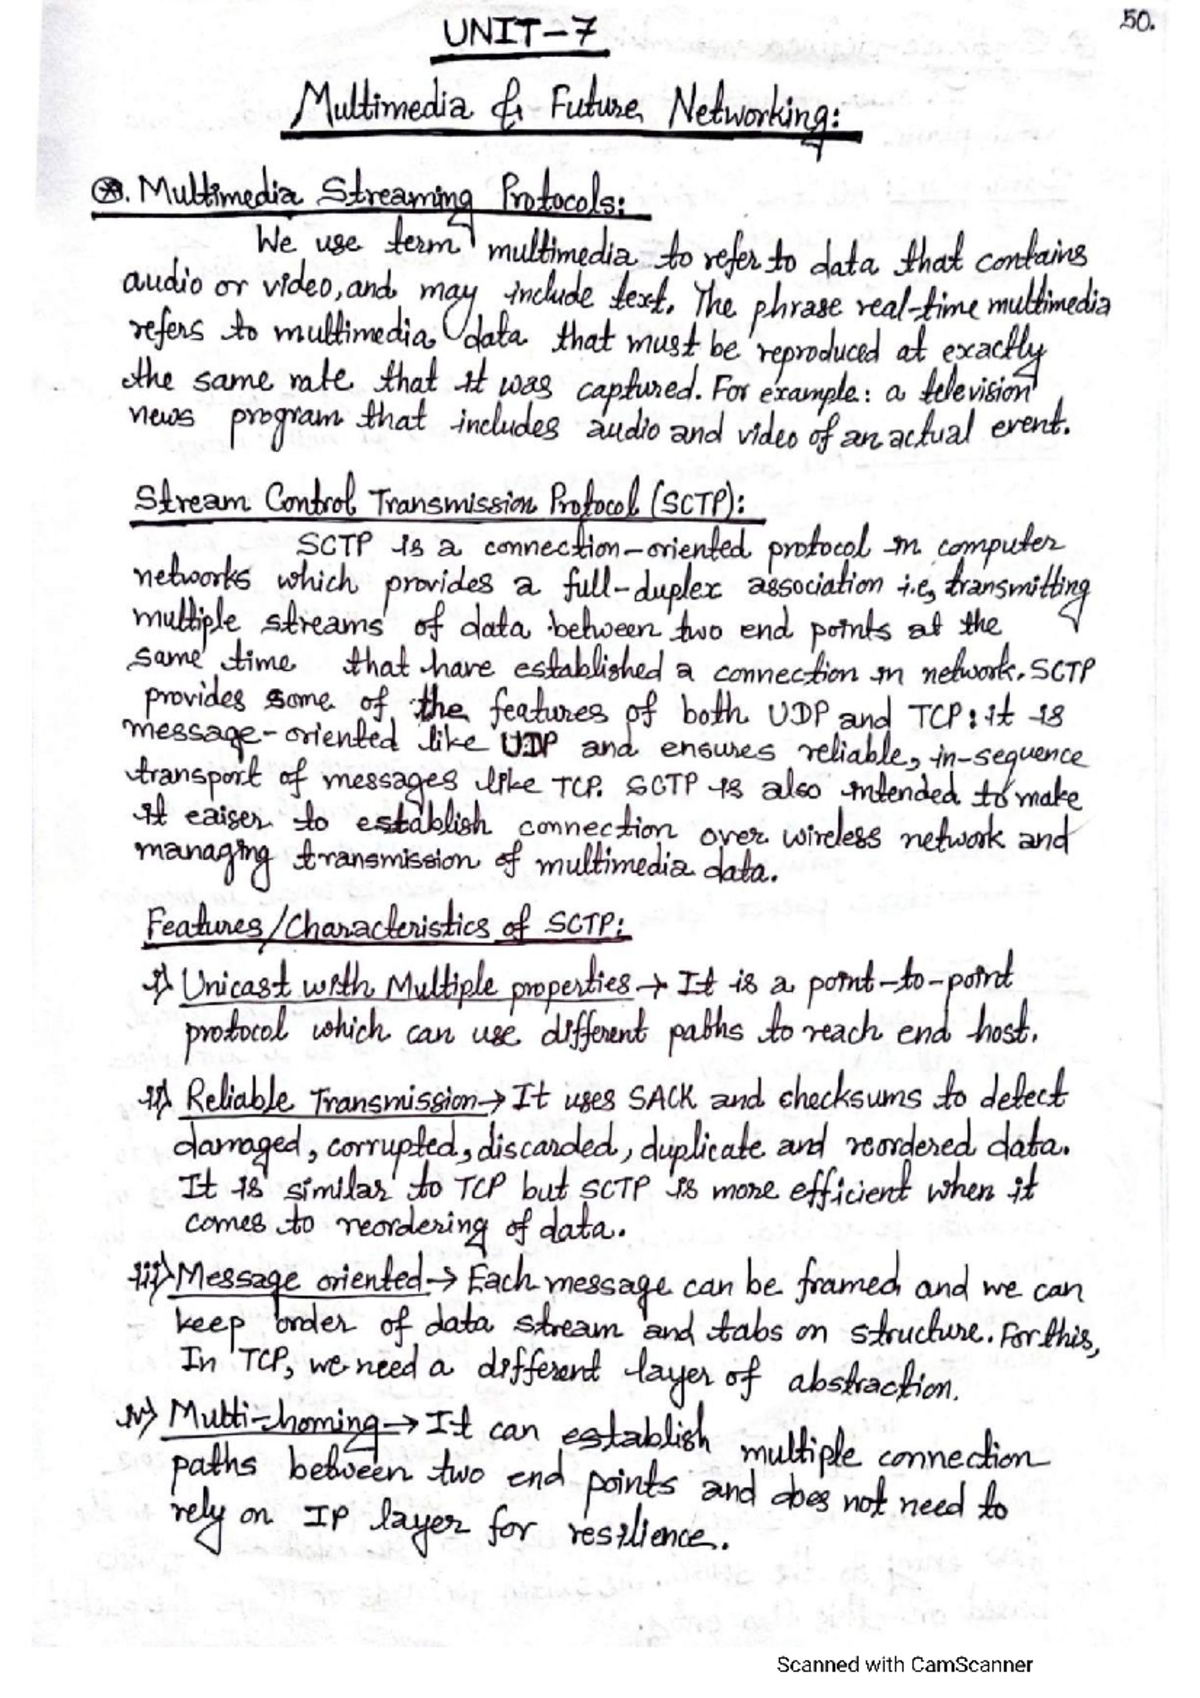 50.
UNIT-7
Multimedia & Future Networking:
⊛. Multimedia Streaming Protocols:
We use term multimedia to refer to data that contains
audio or video, and may include text. The phrase real-time multimedia
refers to multimedia data that must be reproduced at exactly
the same rate that it was captured. For example: a television
news program that includes audio and video of an actual event.
Stream Control Transmission Protocol (SCTP):
SCTP is a connection-oriented protocol in computer
networks which provides a full-duplex association i.e, transmitting
multiple streams of data between two end points at the
same time that have established a connection in network. SCTP
provides some of the features of both UDP and TCP: it is
message-oriented like UDP and ensures reliable, in-sequence
transport of messages like TCP. SCTP is also intended to make
it eaiser to establish connection over wireless network and
managing transmission of multimedia data.
Features/Characteristics of SCTP:
i) Unicast with Multiple properties → It is a point-to-point
protocol which can use different paths to reach end host.
ii) Reliable Transmission → It uses SACK and checksums to detect
damaged, corrupted, discarded, duplicate and reordered data.
It is similar to TCP but SCTP is more efficient when it
comes to reordering of data.
iii) Message oriented → Each message can be framed and we can
keep order of data stream and tabs on structure. For this,
In TCP, we need a different layer of abstraction.
iv) Multi-homing → It can establish multiple connection
paths between two end points and does not need to
rely on IP layer for resilience.
Scanned with CamScanner